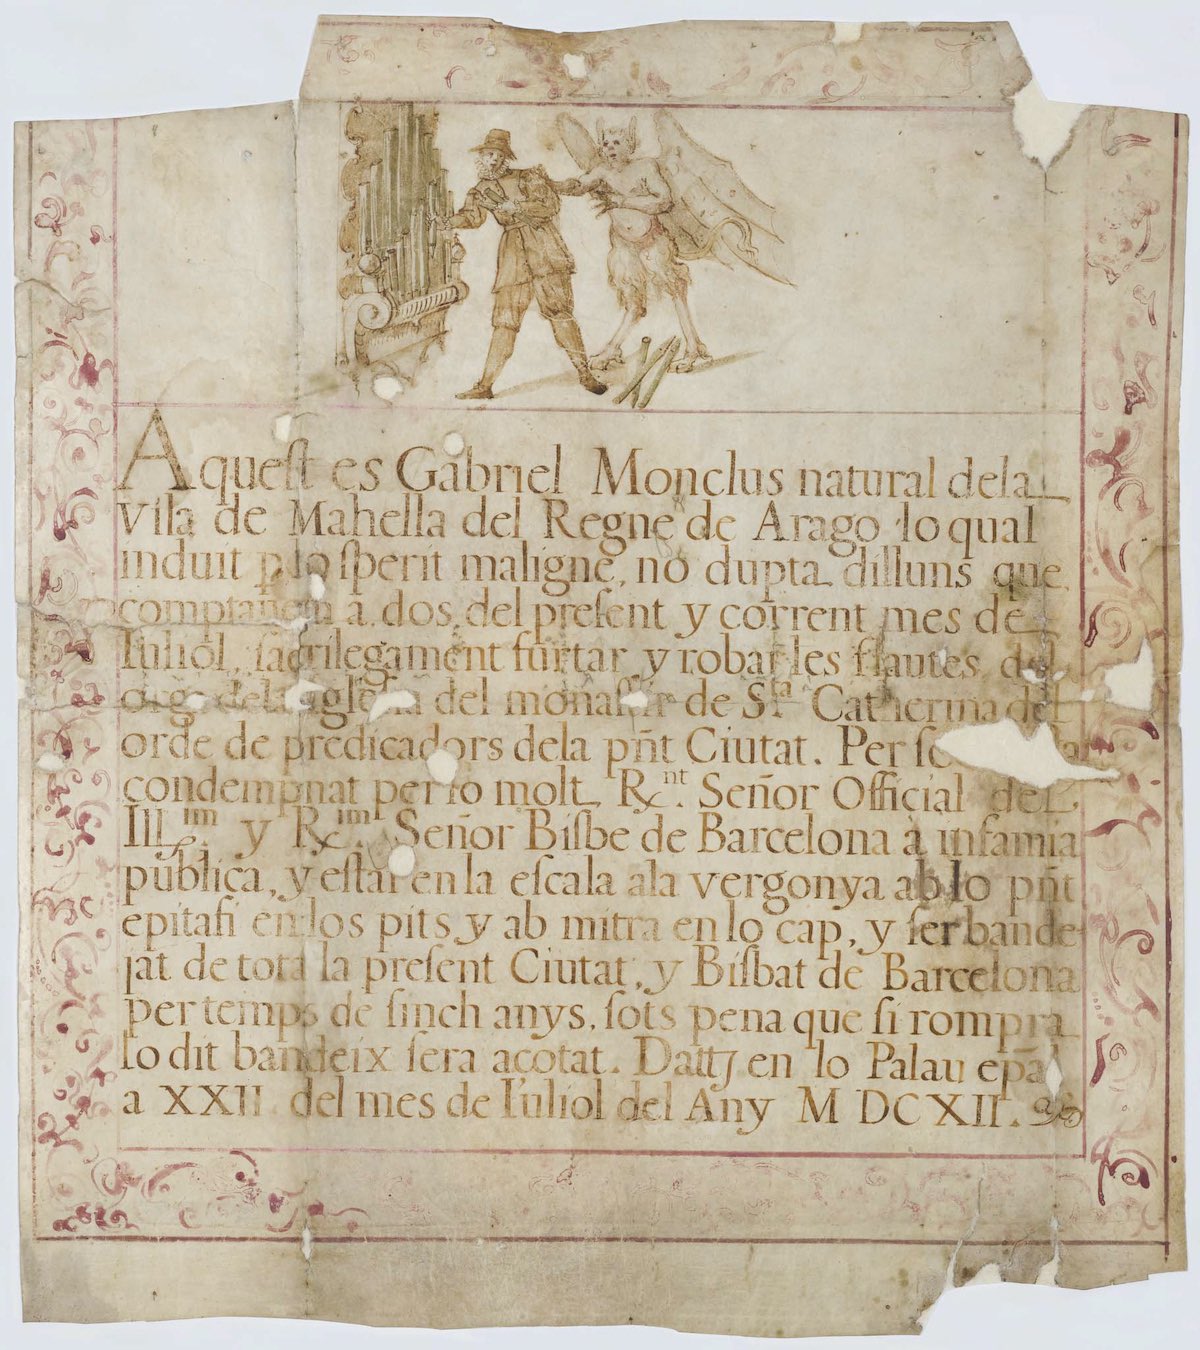 Aquest es Gabriel Monclus natural dela
Vila de Mahella del Regne de Arago lo qual
induit p lo sperit maligne, no dupta dilluns que
comptauem a dos del present y corrent mes de
Iuliol, sacrilegament furtar y robar les flautes del
orga dela iglesia del monastir de S.ta Catherina del
orde de predicadors dela pñt Ciutat. Per so
condempnat per lo molt R.nt Señor Official del
Ill.im y R.im Señor Bisbe de Barcelona à infamia
publica, y estar en la escala ala vergonya ab lo pñt
epitafi en los pits y ab mitra en lo cap, y ser bande-
jat de tota la present Ciutat, y Bisbat de Barcelona
per temps de sinch anys, sots pena que si rompra
lo dit bandeix sera açotat. Dattj en lo Palau epãl
a XXII del mes de Iuliol del Any MDCXII.